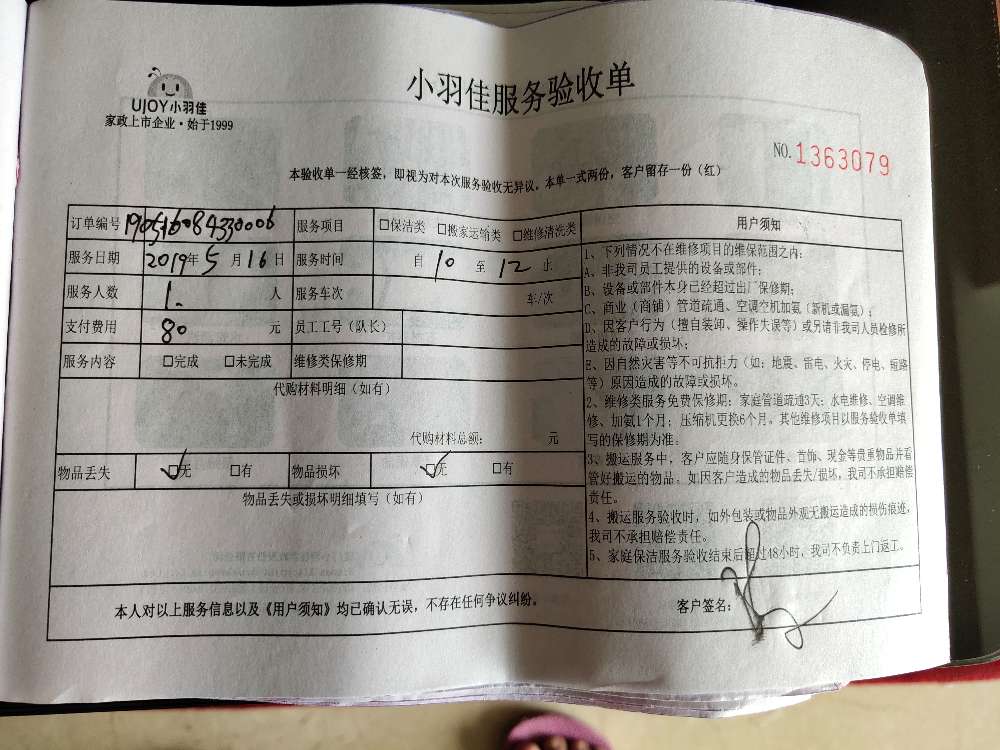 UJOY小羽佳
家政上市企业·始于1999
小羽佳服务验收单
NO. 1363079
本验收单一经核签，即视为对本次服务验收无异议。本单一式两份，客户留存一份（红）
订单编号 190516084330006 服务项目 □保洁类 □搬家运输类 □维修清洗类
服务日期 2019年5月16日 服务时间 自 10 至 12 止
服务人数 1. 人 服务车次 车/次
支付费用 80 元 员工工号（队长）
服务内容 □完成 □未完成 维修类保修期
代购材料明细（如有）
代购材料总额： 元
物品丢失 ☑无 □有 物品损坏 ☑无 □有
物品丢失或损坏明细填写（如有）
用户须知
1、下列情况不在维修项目的维保范围之内：
A、非我司员工提供的设备或部件；
B、设备或部件本身已经超过出厂保修期；
C、商业（商铺）管道疏通、空调空机加氨（新机或漏氨）；
D、因客户行为（擅自装卸、操作失误等）或另请非我司人员检修所
造成的故障或损坏；
E、因自然灾害等不可抗拒力（如：地震、雷电、火灾、停电、短路
等）原因造成的故障或损坏。
2、维修类服务免费保修期：家庭管道疏通3天；水电维修、空调维
修、加氨1个月；压缩机更换6个月。其他维修项目以服务验收单填
写的保修期为准。
3、搬运服务中，客户应随身保管证件、首饰、现金等贵重物品并看
管好搬运的物品，如因客户造成的物品丢失/损坏，我司不承担赔偿
责任。
4、搬运服务验收时，如外包装或物品外观无搬运造成的损伤痕迹，
我司不承担赔偿责任。
5、家庭保洁服务验收结束后超过48小时，我司不负责上门返工。
本人对以上服务信息以及《用户须知》均已确认无误，不存在任何争议纠纷。 客户签名：